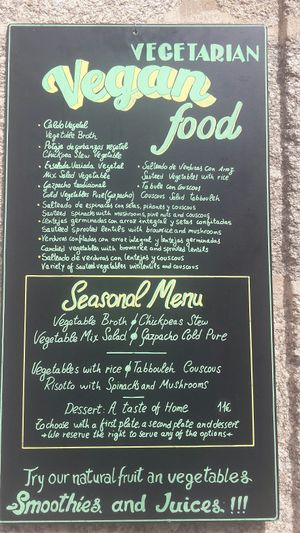 VEGETARIAN
Vegan
food
• Caldo Vegetal
Vegetable Broth
• Potaje de garbanzos vegetal
Chickpea Stew Vegetable
• Ensalada Variada Vegetal
Mix Salad Vegetable
• Gazpacho tradicional
Cold Vegetables Pure (Gazpacho)
• Salteado de Verduras con Arroz
Sauteed Vegetables with rice
• Tabulé con couscous
Couscous Salad Tabbouleh
• Salteado de espinacas con setas, piñones y couscous
Sauteed Spinachs with mushrooms, pine nuts and couscous
• Lentejas germinadas con arroz integral y setas confitadas
Sauteed Sprouted lentils with brownrice and mushrooms
• Verduras confitadas con arroz integral y lentejas germinadas
Candied vegetables with brownrice and sprouted lentils
• Salteado de verduras con lentejas y couscous
Variety of sauteed vegetables with lentils and couscous
Seasonal Menu
Vegetable Broth Chickpeas Stew
Vegetable Mix Salad Gazpacho Cold Pure
Vegetables with rice Tabbouleh Couscous
Risotto with Spinachs and Mushrooms
Dessert: A taste of Home 11€
To choose with a first plate, a second plate and dessert
We reserve the right to serve any of the options
Try our natural fruit an vegetables
Smoothies and Juices!!!